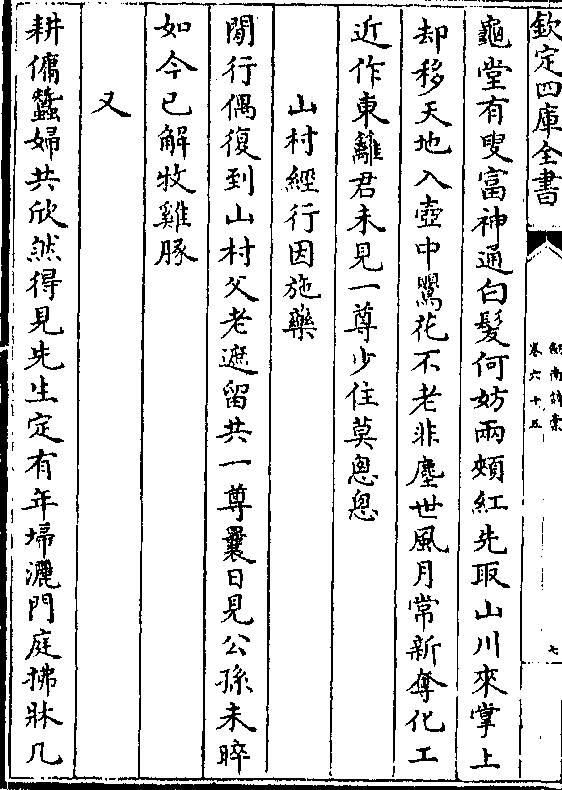 欽定四庫全書
劍南詩稾
卷六十五
七
龜堂有叟富神通白髮何妨兩頰紅先取山川來掌上
却移天地入壺中鸎花不老非塵世風月常新奪化工
近作東籬君未見一尊少住莫怱怱
山村經行因施藥
閒行偶復到山村父老遮留共一尊曩日見公孫未晬
如今已解牧雞豚
又
耕傭蠶婦共欣然得見先生定有年埽灑門庭拂牀几